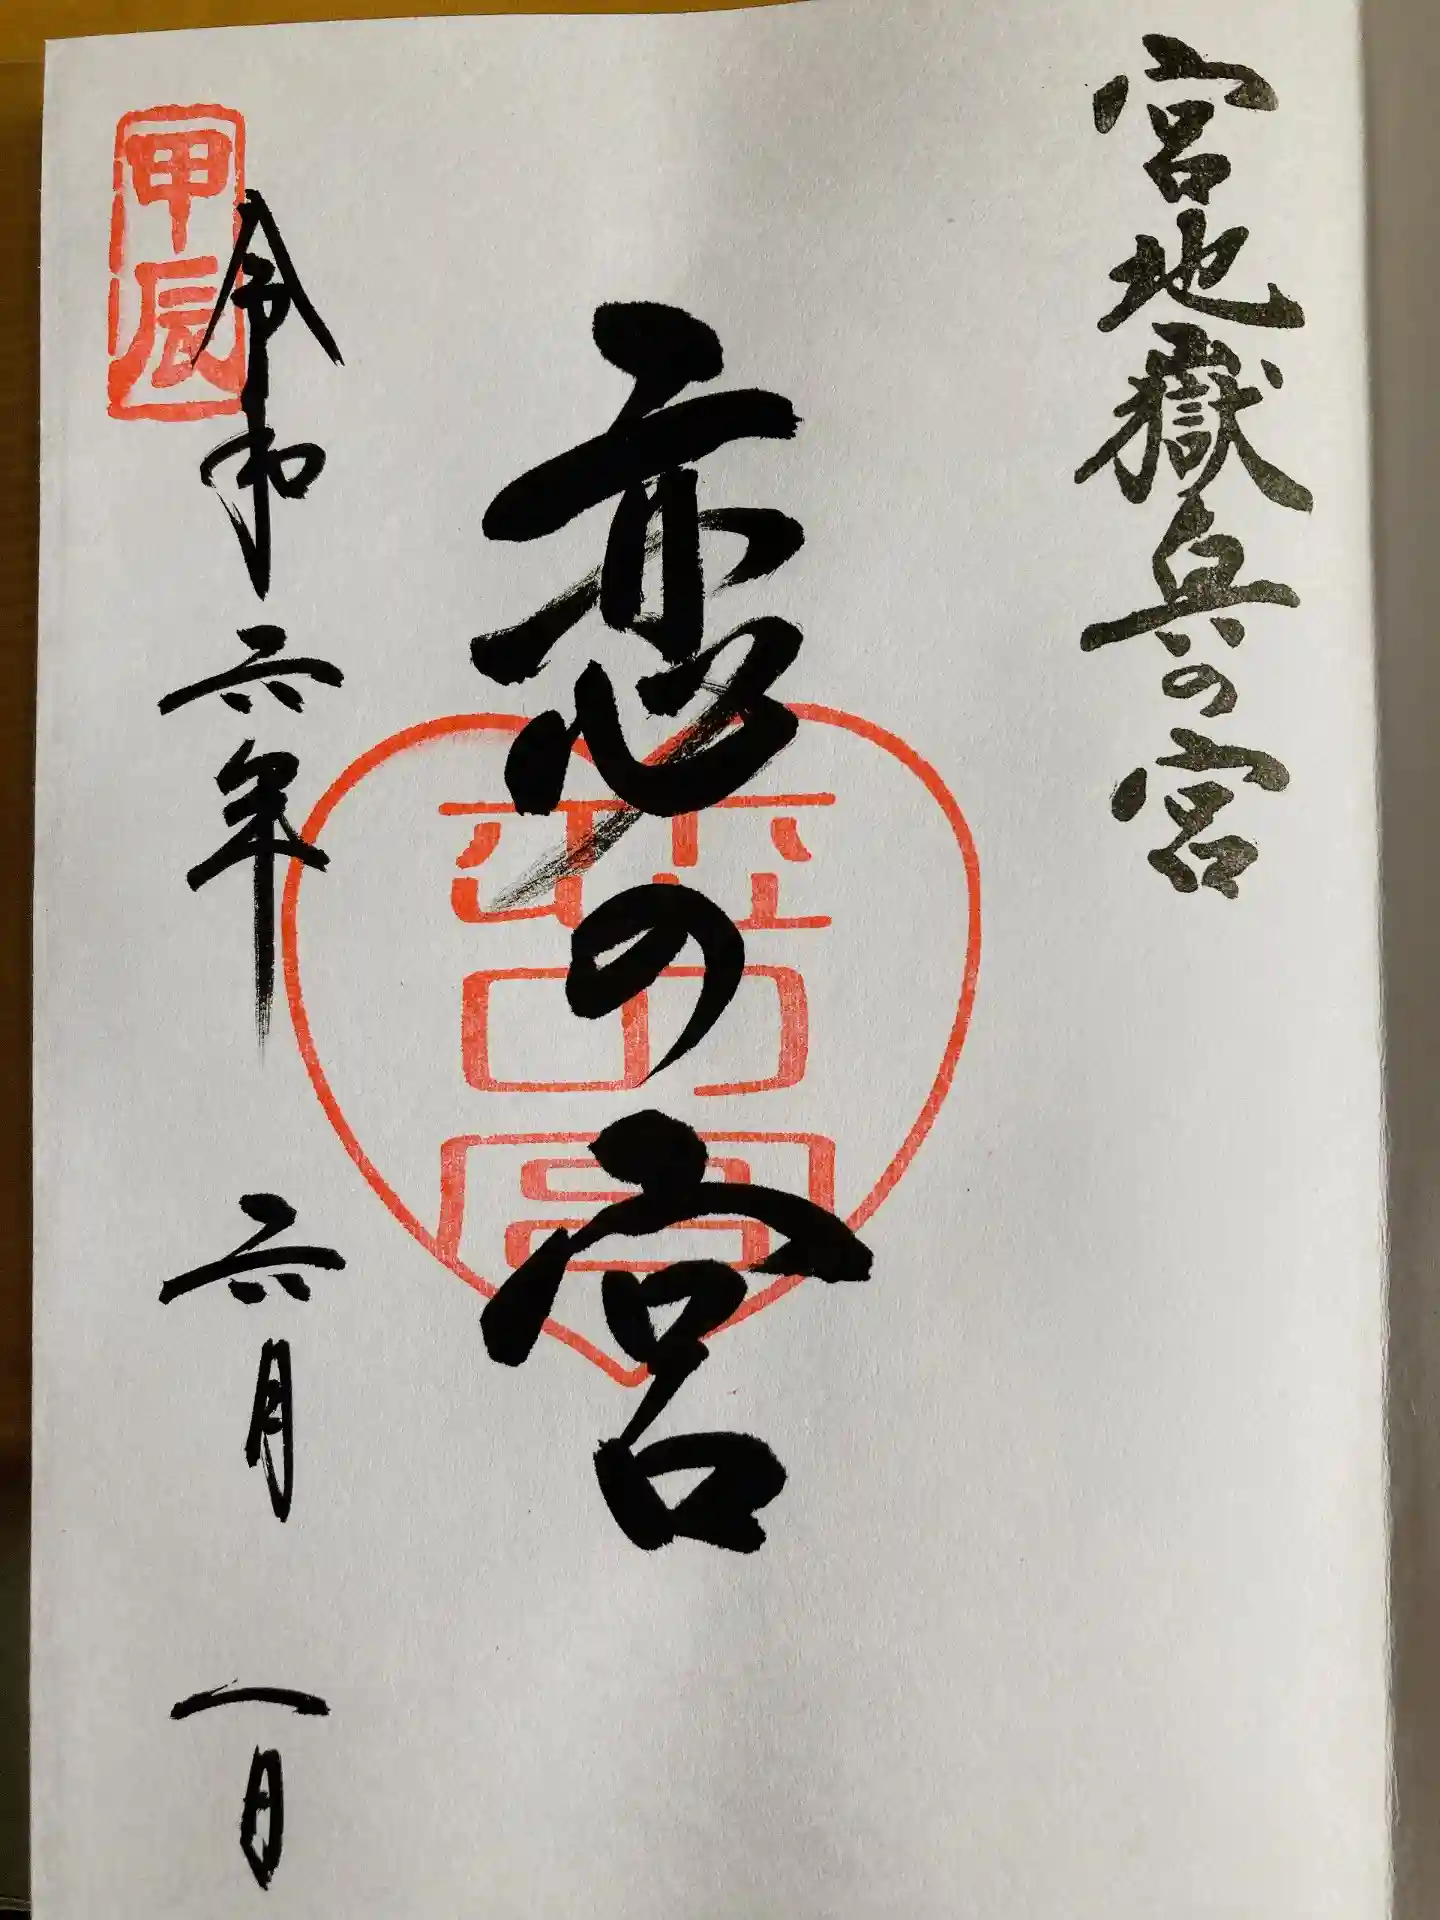 宮地嶽兵の宮
恋の宮
恋の宮
甲辰
令和六年 六月 一日